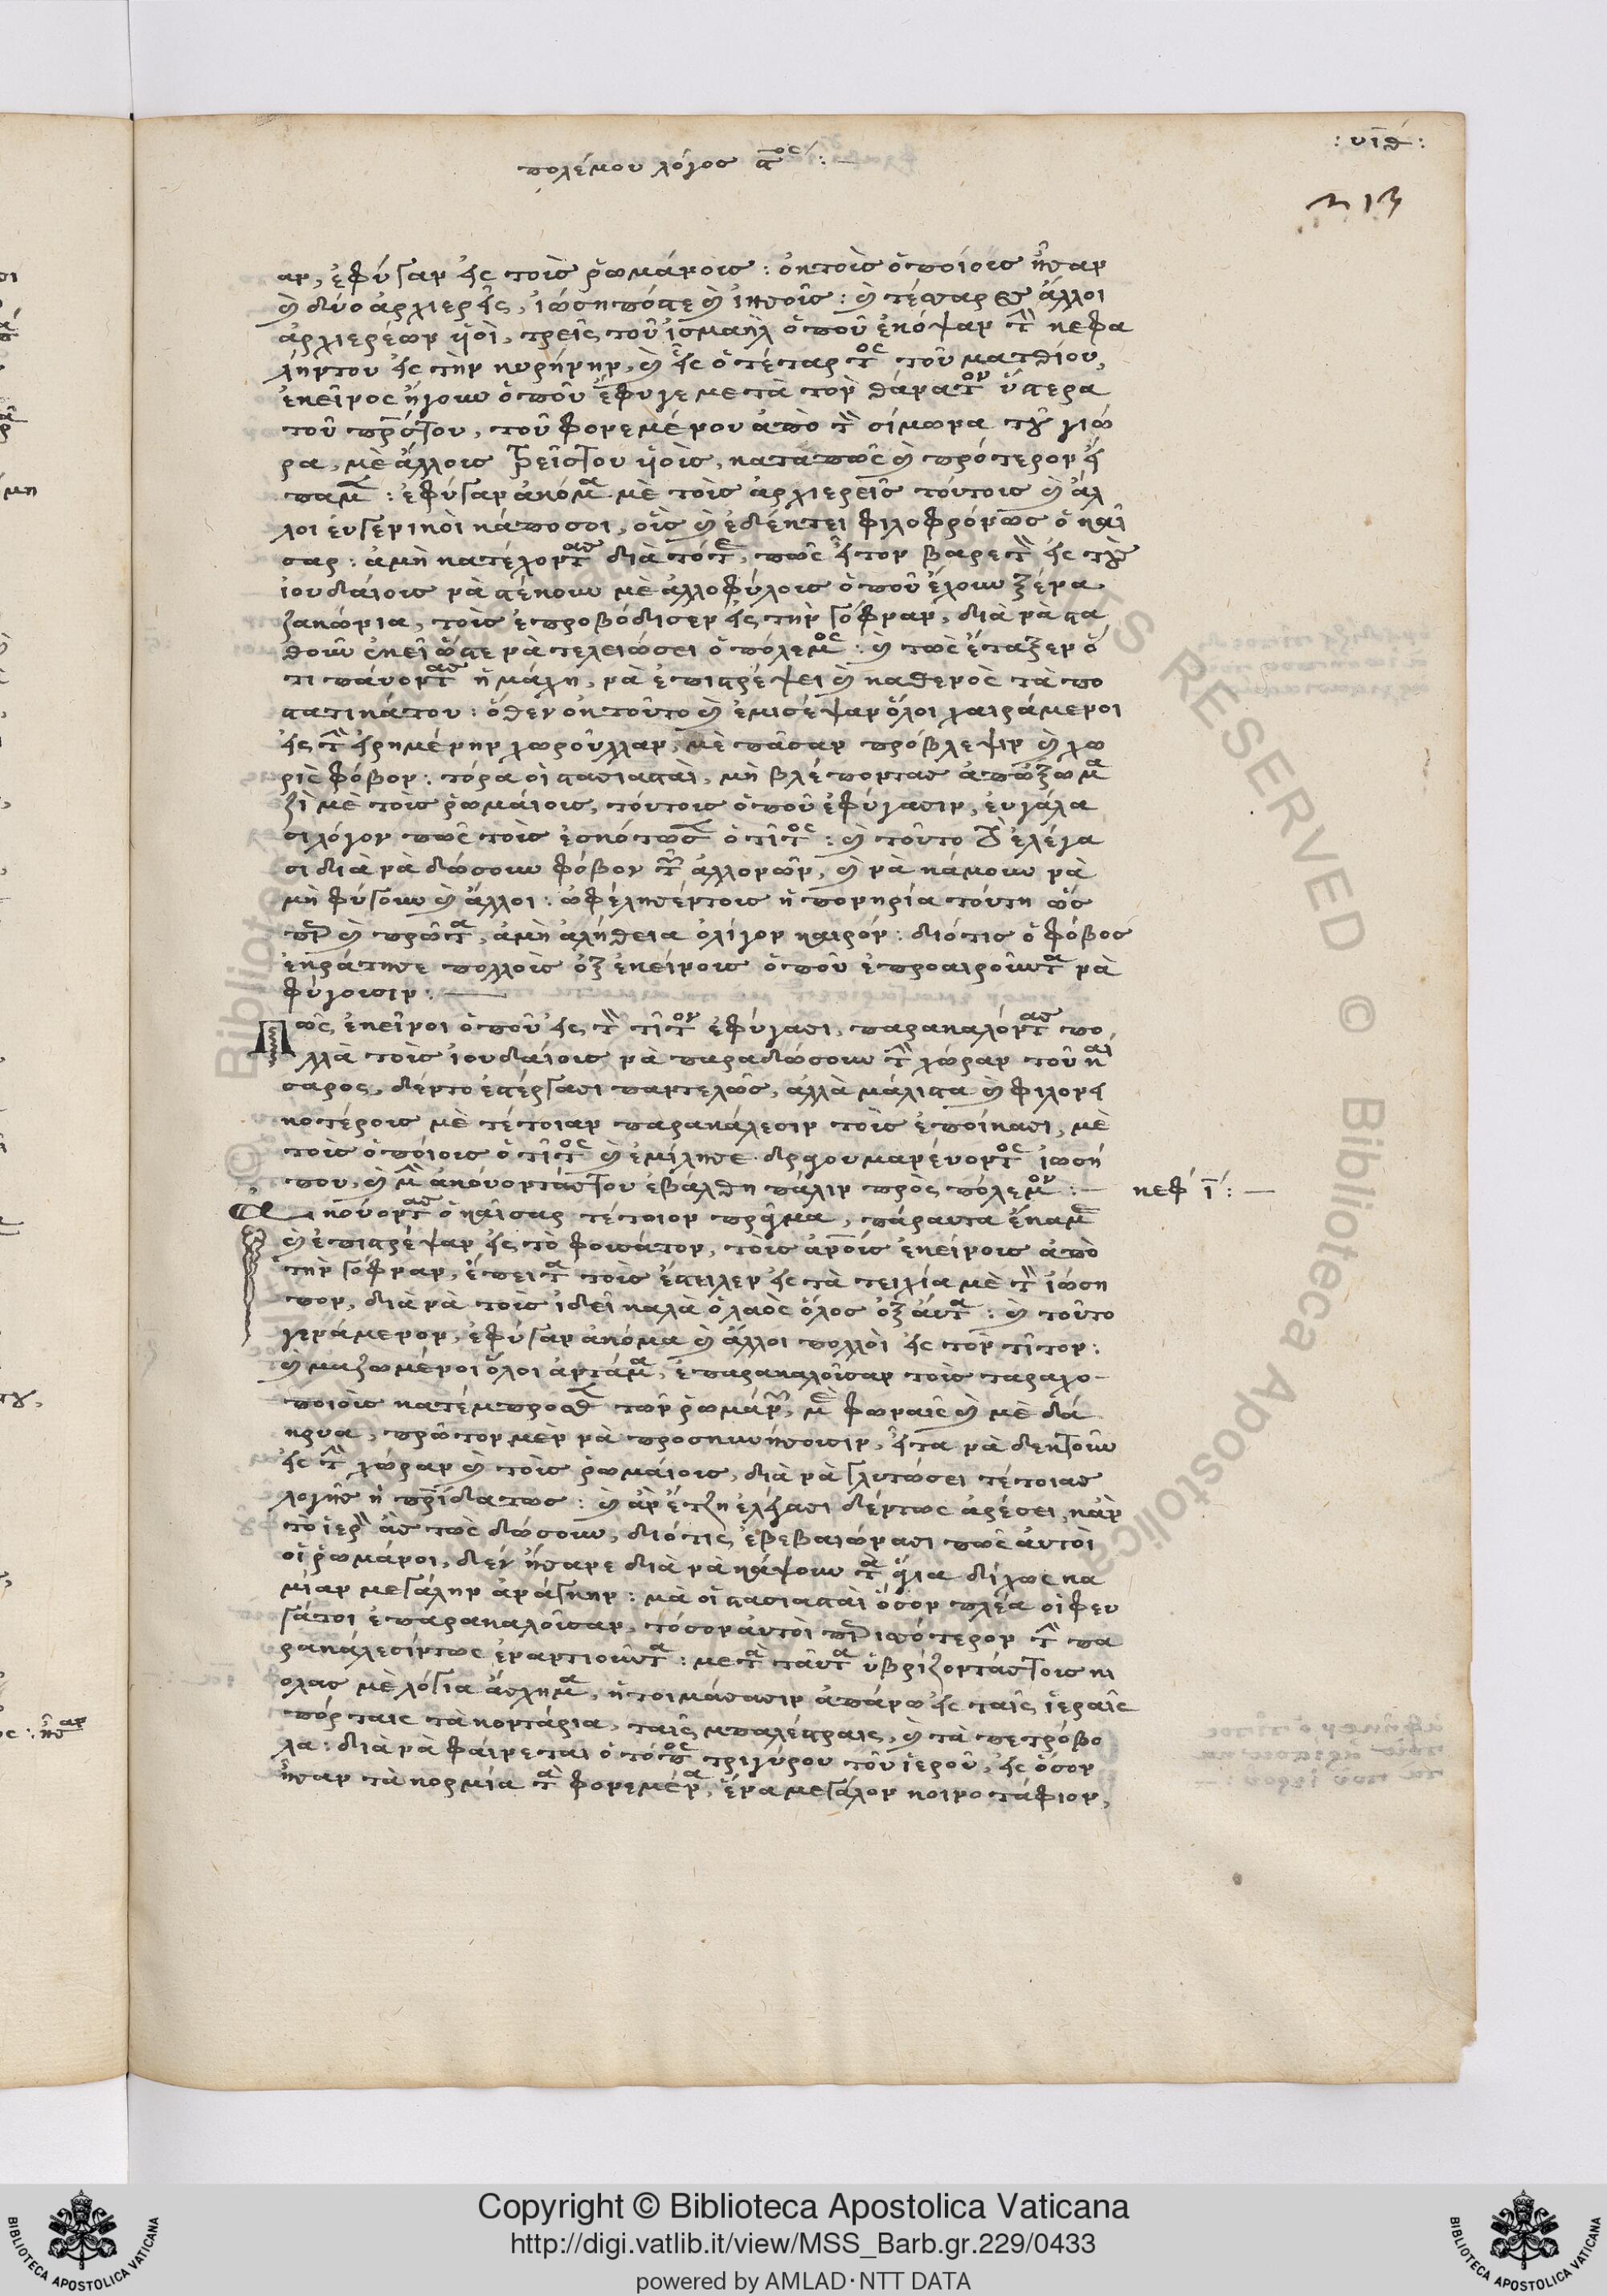 : υιθ :
πολέμου λόγος ϛ^ος : —
213
αν, ἐφύγαν εἰς τοὺς ῥωμάνους : ἐκ τοὺς ὁποίους ἦσαν
καὶ δύο ἀρχιερεῖς, ἰώσηπός τε καὶ ἰησοῦς : καὶ τέσσαρες ἄλλοι
ἀρχιερέων υἱοὶ, τρεῖς τοῦ ἰσμαὴλ ὁποῦ ἐκόψαν τὴν κεφα
λήν του εἰς τὴν κυρήνην, καὶ εἷς ὁ τέταρτος τοῦ ματθίου,
ἐκεῖνος ἤγουν ὁποῦ ἔφυγε μετὰ τὸν θάνατον ὕστερα
τοῦ πατρός του, τοῦ φονεμένου ἀπὸ τὸν σίμωνα τοῦ γιώ
ρα, μὲ ἄλλους τρεῖς του υἱοὺς, καταπῶς καὶ πρότερον εἴ
παμεν : ἐφύγαν ἀκόμα μὲ τοὺς ἀρχιερεῖς τούτους καὶ ἄλ
λοι εὐγενικοὶ κάποσοι, οὓς καὶ ἐδέκτει φιλοφρόνως ὁ καῖ
σαρ : ἀμὴ κατέχοντας διὰ τότε, πῶς ἦτον βαρετὸν εἰς τοὺς
ἰουδαίους νὰ στέκουν μὲ ἀλλοφύλους ὁποῦ ἔχουν ξένα
ζακώνια, τοὺς ἐπροβόδισεν εἰς τὴν γόφναν, διὰ νὰ στα
θοῦν ἐκεῖ ὥστε νὰ τελειώσει ὁ πόλεμος : καὶ τῶς ἔταξεν ὅ
τι πάυοντας ἡ μάχη, νὰ ἐπιστρέψει καὶ καθενὸς τὰ πο
στατικάτου : ὅθεν ἐκ τοῦτο καὶ ἐμισέψαν ὅλοι χαιράμενοι
εἰς τὴν εἰρημένην χωρούλλαν, μὲ πᾶσαν πρόβλεψιν καὶ χω
ρὶς φόβον : τόρα οἱ στασιασταὶ, μὴ βλέποντας ἀπῶξωμα
ζὶ μὲ τοὺς ῥωμάιους, τούτους ὁποῦ ἐφύγασιν, ἐυγάλα
σι λόγον πῶς τοὺς ἐσκότωσεν ὁ τῖτος : καὶ τοῦτο δὲ ἐλέγα
σι διὰ νὰ δώσουν φόβον τῶν ἀλλονῶν, καὶ νὰ κάμουν νὰ
μὴ φύγουν καὶ ἄλλοι : ὠφέλησέντους ἡ πονηρία τούτη ὥς
περ καὶ πρῶτα, ἀμὴ ἀλήθεια ὀλίγον καιρόν : διότις ὁ φόβος
ἐκράτησε πολλοὺς ἐξ ἐκείνους ὁποῦ ἐπροαιροῦντα νὰ
φύγουσιν : —
Πῶς ἐκεῖνοι ὁποῦ εἰς τὸν τῖτον ἐφύγασι, παρακαλόντας πο
λλὰ τοὺς ἰουδαίους νὰ παραδώσουν τὴν χώραν τοῦ καί
σαρος, δέν τὸ ἐστέρξασι παντελῶς, ἀλλὰ μάλιστα καὶ φιλονει
κοτέρους μὲ τέτοιαν παρακάλεσιν τοὺς ἐποίκασι, μὲ
τοὺς ὁποίους ὁ τῖτος καὶ ἐμίλησε δραγουμανέυοντος ἰωσή
που, καὶ μὴ ἀκούοντάς του ἐβάλθη πάλιν πρὸς πόλεμον : —
κεφ ι : —
Ἀκούοντας ὁ καῖσαρ τέτοιον πρᾶγμα, πάραυτα ἔκαμε
καὶ ἐπιστρέψαν εἰς τὸ φουσάτον, τοὺς ἀνθρώπους ἐκείνους ἀπὸ
τὴν γόφναν, ἔπειτα τοὺς ἔστειλεν εἰς τὰ τειχία μὲ τὸν ἰώση
πον, διὰ νὰ τοὺς ἰδεῖ καλὰ ὁ λαὸς ὅλος ἐξ ἀυτὰ : καὶ τοῦτο
γενάμενον, ἐφύγαν ἀκόμα καὶ ἄλλοι πολλοὶ εἰς τὸν τῖτον :
καὶ μαζωμένοι ὅλοι ἀντάμα, ἐπαρακαλοῦσαν τοὺς ταραχο
ποιοὺς κατέμπροσθεν τῶν ῥωμάνων, μὲ φωναῖς καὶ μὲ δά
κρυα, πρῶτον μὲν νὰ προσκυνήσουσιν, εἶτα νὰ δεκτοῦν
εἰς τὴν χώραν καὶ τοὺς ῥωμάιους, διὰ νὰ γλυτώσει τέτοιας
λογῆς ἡ πατρίδα τως : καὶ ἂν ἔτζη ἐλέγασι δέν τως ἀρέσει, κἂν
τὸ ἱερὸν ἂς τῶς δώσουν, διότις ἐβεβαιώνασι πῶς ἀυτοὶ
οἱ ῥωμάνοι, δὲν ἤσανε διὰ νὰ κάψουν τὰ ἅγια δίχως κα
μίαν μεγάλην ἀνάγκην : μὰ οἱ στασιασταὶ ὅσον πλέα οἱ φευ
γάτοι ἐπαρακαλοῦσαν, τόσον ἀυτοὶ περισσότερον τὴν πα
ρακάλεσίν τως ἐναντιοῦντα : μετὰ ταῦτα ὑβρίζοντάς τους κι
ὅλας μὲ λόγια ἄσχημα, ἡτοιμάσασιν ἀπάνω εἰς ταῖς ἱεραῖς
πόρταις τὰ κοντάρια, ταῖς μπαλέστραις, καὶ τὰ πετρόβο
λα : διὰ νὰ φάινεται ὁ τόπος τριγύρου τοῦ ἱεροῦ, εἰς ὅσον
ἦσαν τὰ κορμία τὰ φονεμένα, ἕνα μεγάλον κοινοτάφιον,
Copyright © Biblioteca Apostolica Vaticana
http://digi.vatlib.it/view/MSS_Barb.gr.229/0433
powered by AMLAD·NTT DATA